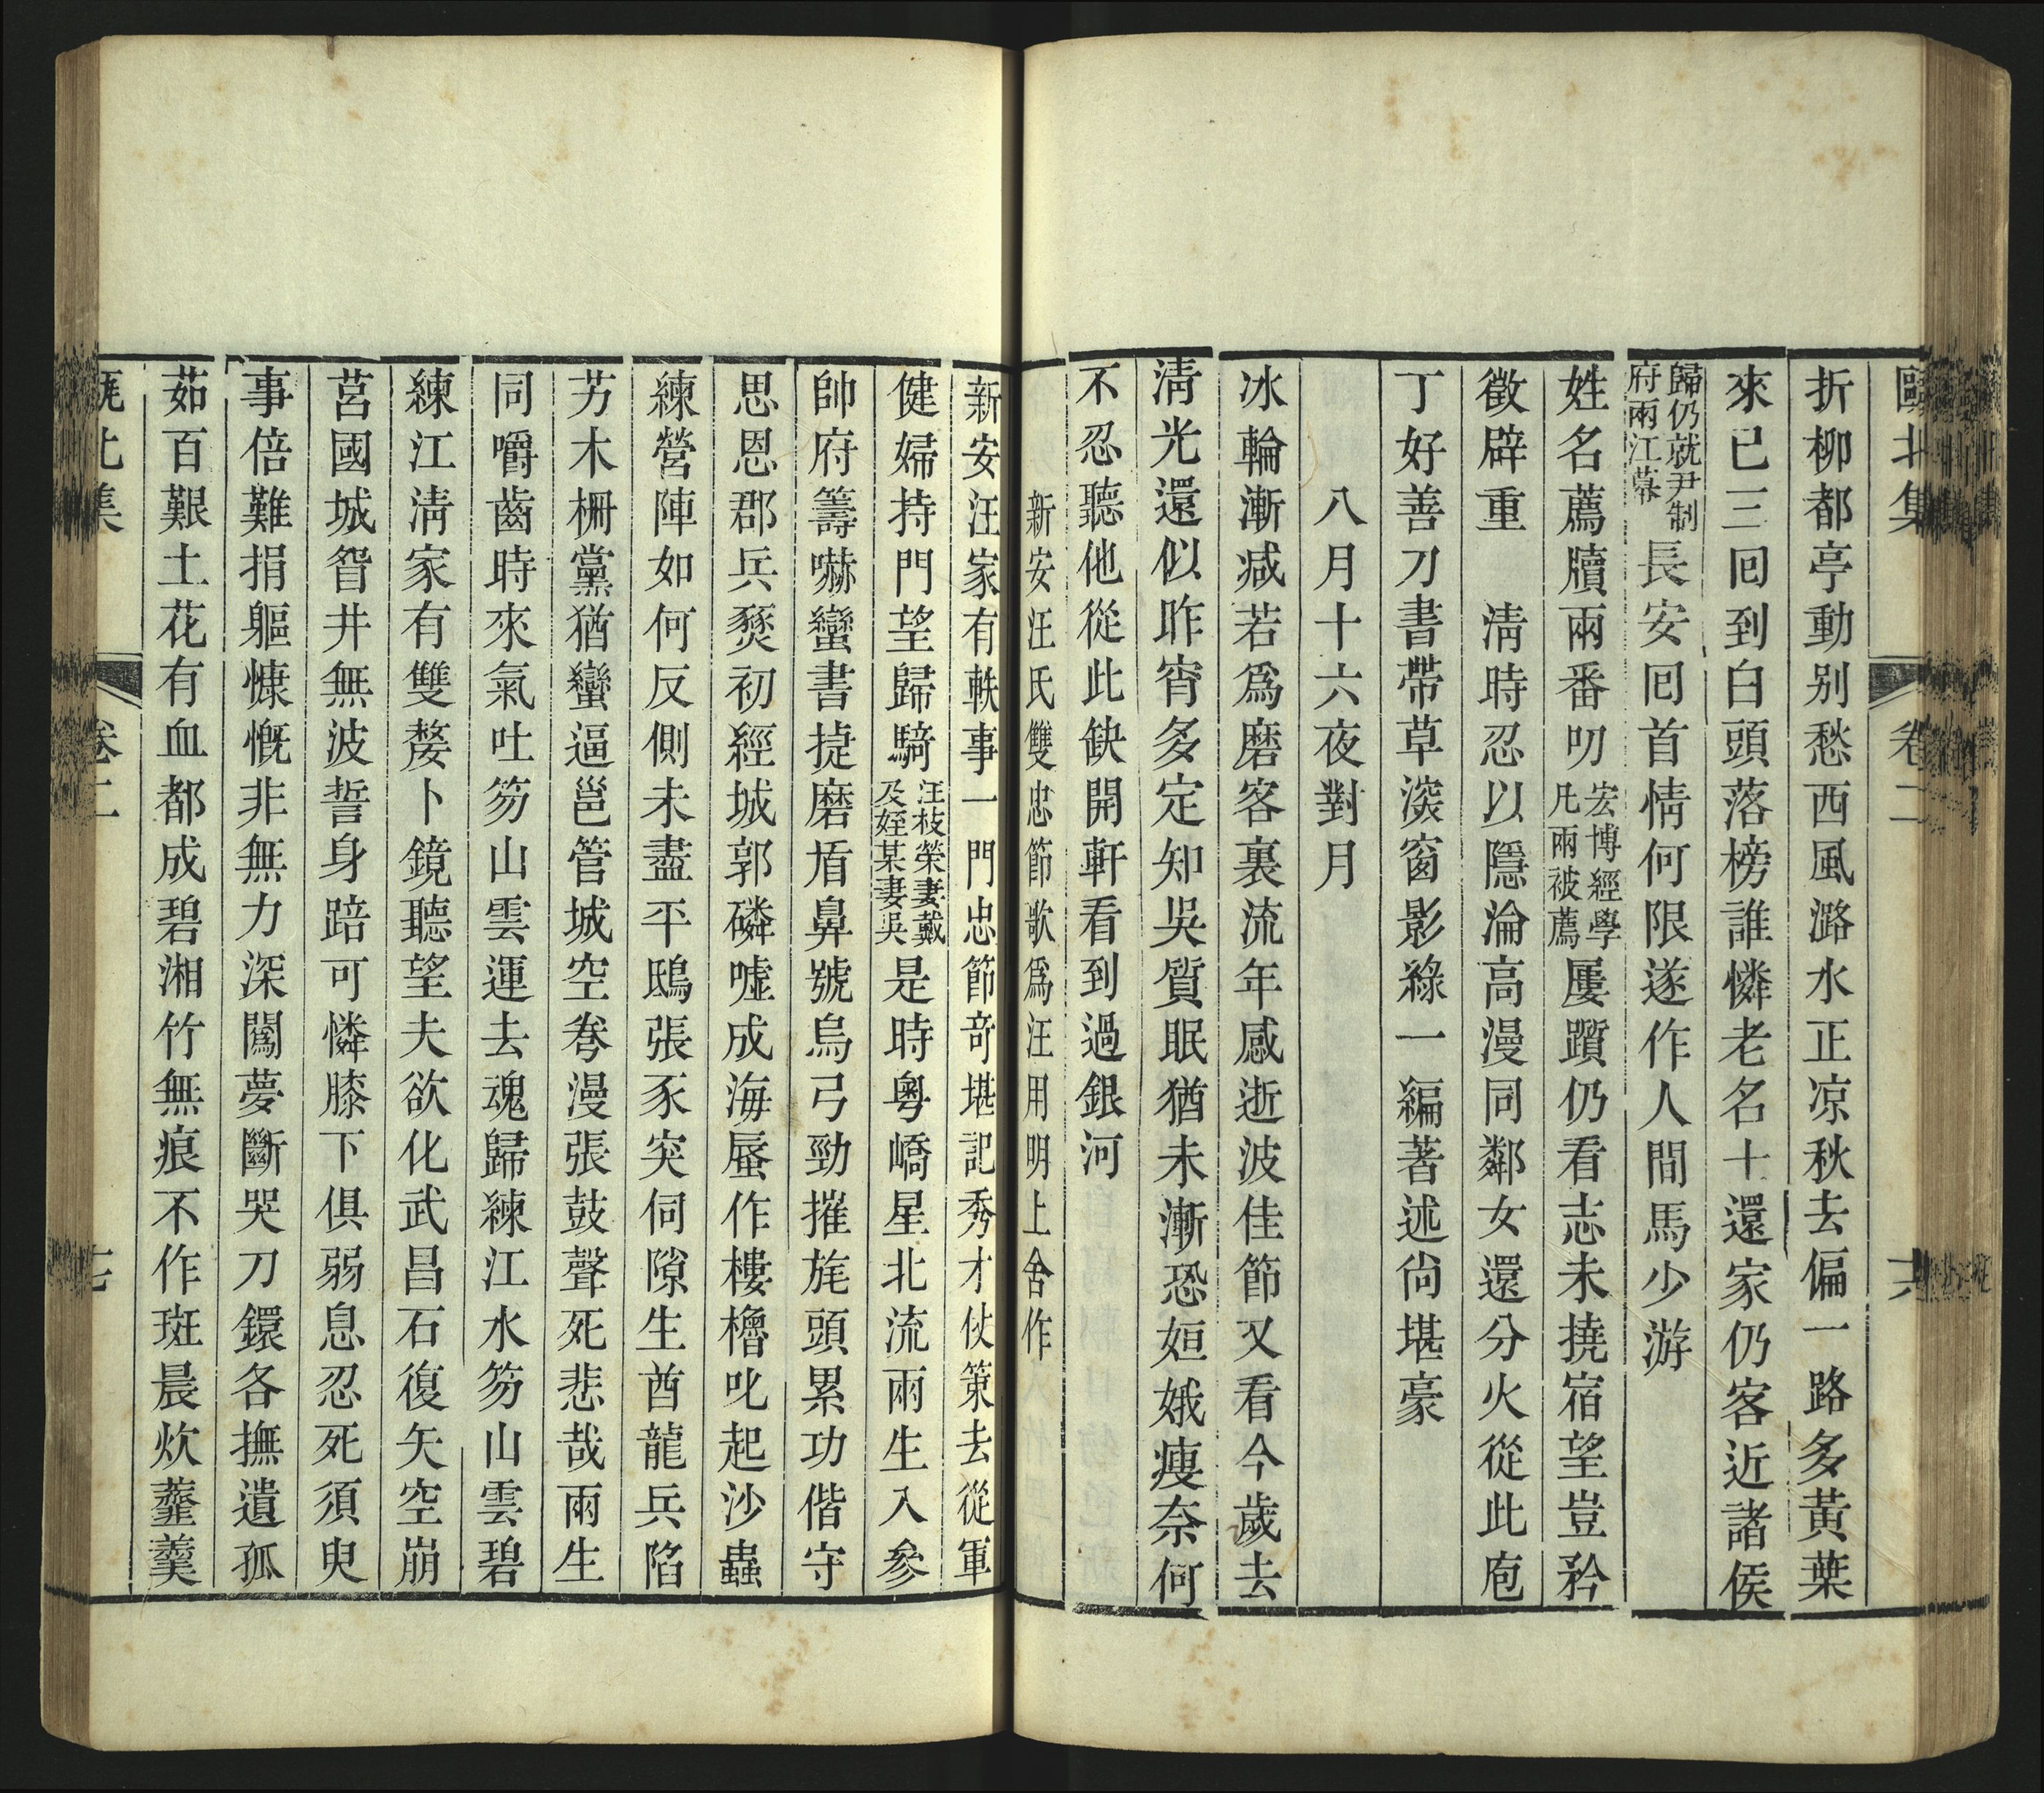 甌北集 卷二 六
折柳都亭動别愁西風潞水正凉秋去偏一路多黃葉
來已三囘到白頭落榜誰憐老名士還家仍客近諸侯
歸仍就尹制府兩江幕長安囘首情何限遂作人間馬少游
姓名薦牘兩番叨宏博經學凡兩被薦屢躓仍看志未撓宿望豈矜
徵辟重 淸時忍以隱淪高漫同鄰女還分火從此庖
丁好善刀書帶草深窗影綠一編著述尙堪豪
八月十六夜對月
冰輪漸减若爲磨客裏流年感逝波佳節又看今歲去
淸光還似昨宵多定知吳質眠猶未漸恐姮娥瘦奈何
不忍聽他從此缺開軒看到過銀河
新安汪氏雙忠節歌爲汪用明上舍作
新安汪家有軼事一門忠節竒堪記秀才仗策去從軍
健婦持門望歸騎汪枝榮妻戴及姪某妻吳是時粵嶠星北流兩生入參
帥府籌嚇蠻書捷磨盾鼻號烏弓勁摧旄頭累功偕守
思恩郡兵燹初經城郭磷噓成海蜃作樓櫓叱起沙蟲
練營陣如何反側未盡平鴟張豕突伺隙生酋龍兵陷
艻木栅黨猶蠻逼邕管城空弮漫張鼓聲死悲哉兩生
同嚼齒時來氣吐笏山雲運去魂歸練江水笏山雲碧
練江淸家有雙嫠卜鏡聽望夫欲化武昌石復矢空崩
莒國城眢井無波誓身踣可憐膝下俱弱息忍死須臾
事倍難捐軀慷慨非無力深閨夢斷哭刀鐶各撫遺孤
茹百艱土花有血都成碧湘竹無痕不作斑晨炊虀羹
甌北集 卷二 七